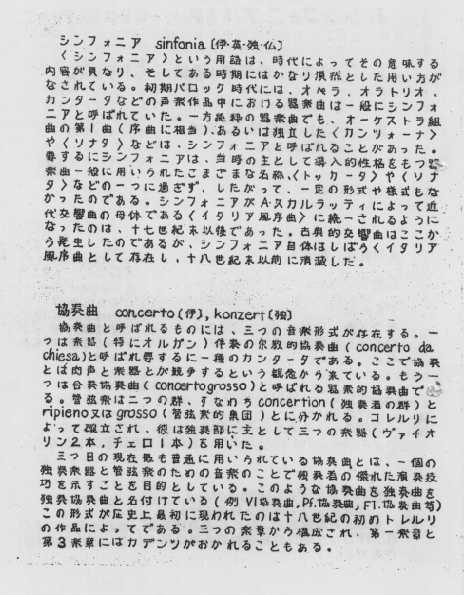 シンフォニア sinfonia〔伊·英·独·仏〕
〈シンフォニア〉という用語は、時代によってその意味する
内容が異なり、そしてある時期にはかなり漠然とした用い方が
なされている。初期バロック時代には、オペラ、オラトリオ、
カンタータなどの声楽作品中における器楽曲は一般にシンフォ
ニアと呼ばれていた。一方純粋の器楽曲でも、オーケストラ組
曲の第1曲(序曲に相当)、あるいは独立した〈カンツォーナ〉
や〈ソナタ〉などは、シンフォニアと呼ばれることがあった。
要するにシンフォニアは、当時の主として導入的性格をもつ器
楽曲一般に用いられたさまざまな名称、〈トッカータ〉や〈ソナ
タ〉などの一つに過ぎず、したがって、一定の形式や様式もな
かったのである。シンフォニアがA·スカルラッティによって近
代交響曲の母体である〈イタリア風序曲〉に統一されるように
なったのは、十七世紀末以後であった。古典的交響曲はここか
う発生したのであるが、シンフォニア自体はしばらく〈イタリア
風序曲として存在し、十八世紀末以前に消滅した。
協奏曲 concerto〔伊〕, konzert〔独〕
協奏曲と呼ばれるものには、三つの音楽形式が存在する。一
つは楽器(特にオルガン)伴奏の宗教的協奏曲(concerto da
chiesa)と呼ばれ要するに一種のカンタータである。ここで協奏
とは肉声と楽器とが競争するという観念から来ている。もう一
つは合奏協奏曲(concerto grosso)と呼ばれる器楽的協奏曲で
る。管弦楽は二つの群、すなわちconcertion(独奏者の群)と
ripieno又はgrosso(管弦楽的集団)とに分かれる。コレルリに
よって確立され、彼は独奏部に主として三つの楽器(ヴァイオ
リン2本、チェロ1本)を用いた。
三つ目の現在最も普通に用いられている協奏曲とは、一個の
独奏楽器と管弦楽のための音楽のことで独奏者の優れた演奏技
巧を示すことを目的としている。このような協奏曲を独奏曲を
独奏協奏曲と名付けている(例 Vl協奏曲, Pf.協奏曲, Fl.協奏曲等)
この形式が歴史上最初に現われたのは十八世紀の初めトレルリ
の作品によってである。三つの楽章から構成され、第一楽章と
第3楽章にはカデンツがおかれることもある。